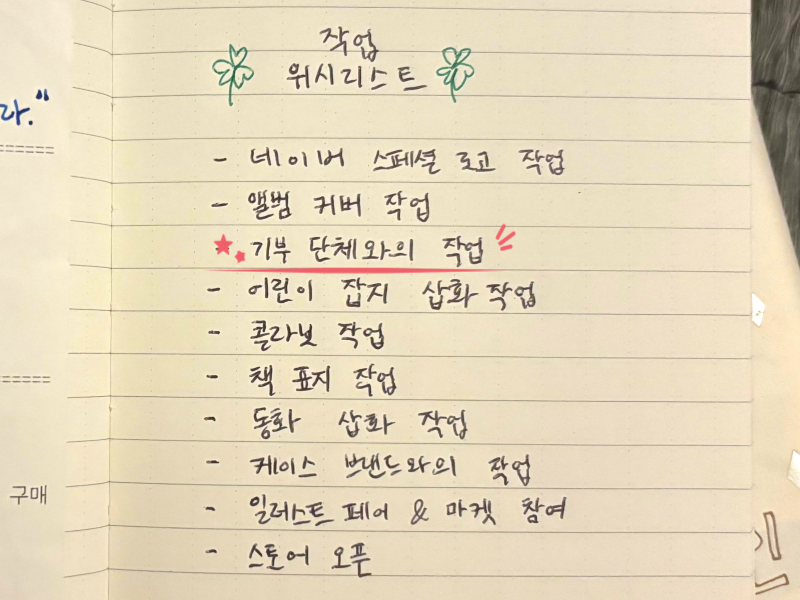 라."
구매
작업
위시리스트
- 네이버 스페셜 로고 작업
- 앨범 커버 작업
기부 단체와의 작업
- 어린이 잡지 삽화 작업
- 콜라보 작업
- 책 표지 작업
- 동화 삽화 작업
- 케이스 브랜드와의 작업
- 일러스트 페어 & 마켓 참여
- 스토어 오픈